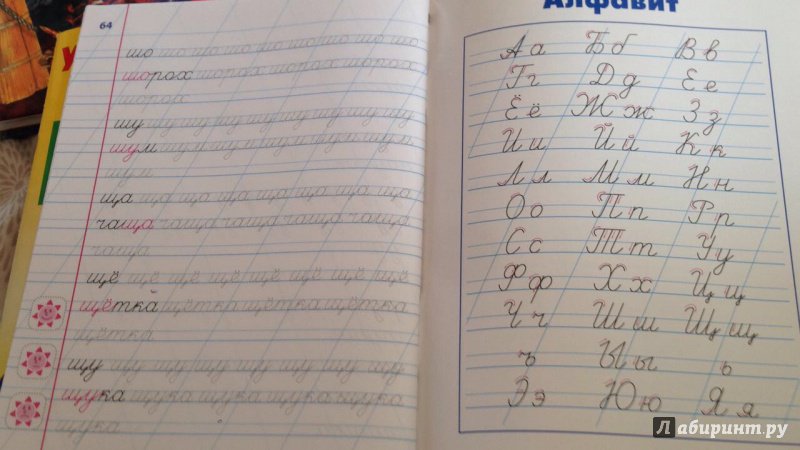 64
шо шо шо шо шо шо шо шо шо
шорох шорох шорох шорох
шорох
шу шу шу шу шу шу шу шу шу
шум шум шум шум шум шум
шум
ща ща ща ща ща ща ща ща
чаща чаща чаща чаща чаща
чаща
щё щё щё щё щё щё щё щё
щётка щётка щётка щётка
щётка
щу щу щу щу щу щу щу щу
щука щука щука щука щука
щука
Алфавит
А а Б б В в
Г г Д д Е е
Ё ё Ж ж З з
И и Й й К к
Л л М м Н н
О о П п Р р
С с Т т У у
Ф ф Х х Ц ц
Ч ч Ш ш Щ щ
ъ Ы ы ь
Э э Ю ю Я я
Лабиринт.ру